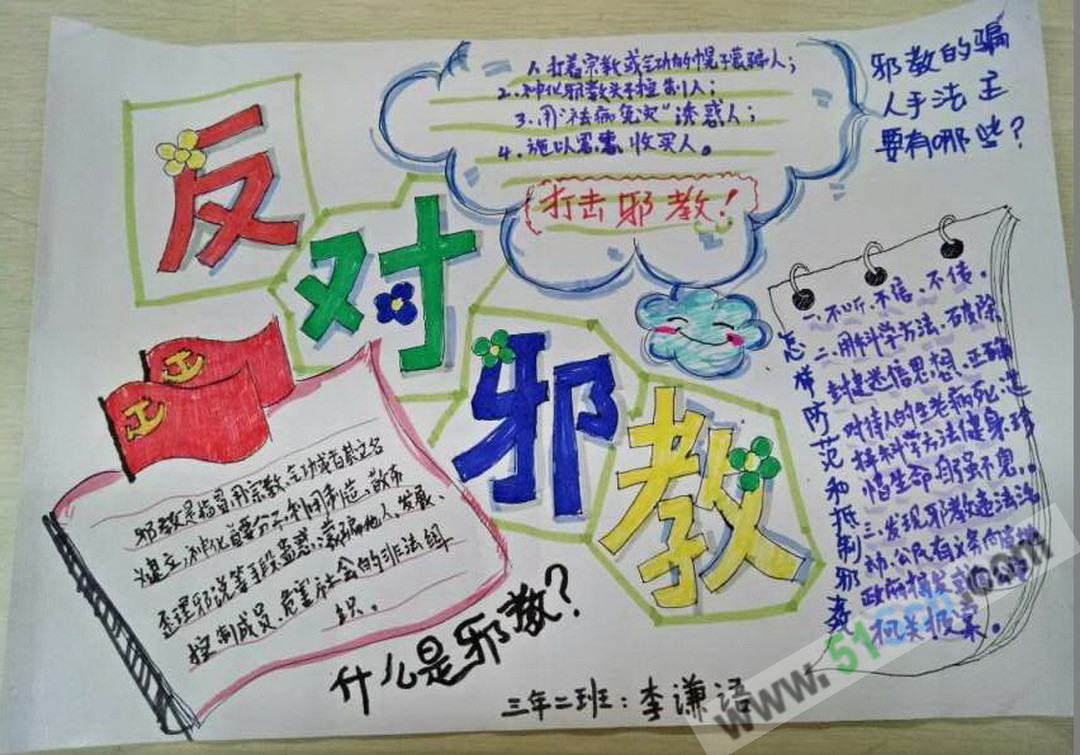 反对邪教
1、打着宗教或气功的幌子蒙骗人；
2、神化邪教头子控制人；
3、用“祛病免灾”诱惑人；
4、施以恩惠、收买人。
打击邪教！
邪教的骗
人手法主
要有哪些？
怎样防范和抵制邪教
一、不听、不信、不传。
二、用科学方法、破除
封建迷信思想、正确
对待人的生老病死、选
择科学方法健身、珍
惜生命、自强不息。
三、发现邪教违法活
动、公民有义务向当地
政府
机关报案。
邪教是指冒用宗教、气功或者其它名
建立、神化首要分子、利用制造、散布
歪理邪说等手段蛊惑、蒙骗他人、发展、
控制成员、危害社会的非法组
织。
什么是邪教？
三年二班：李谦语
www.51
.com